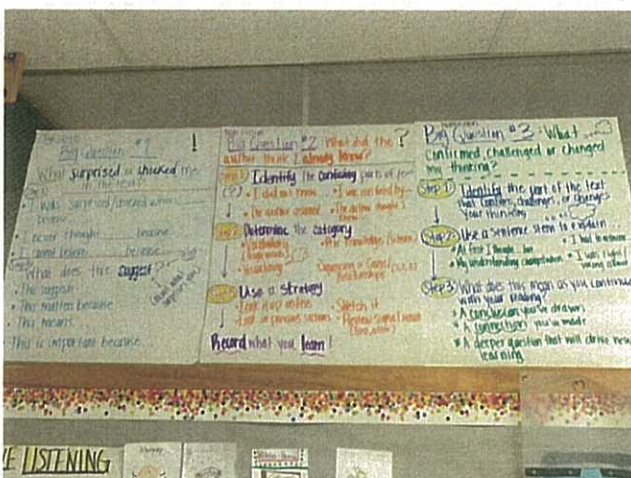 Big Question #1 !
What surprised or shocked me
in the text?
• I was surprised/shocked when
because
• I never thought ... because
• I cannot believe ... because
What does this suggest?
• This suggests
• This matters because
• This means
This is important because...
Big Question #2: What did the ?
author think I already knew?
Step 1 Identify the confusing parts of text
(?) • I did not know... • I was confused by...
• The author assumed • The author thought I
knew
Determine the category
• Vocabulary • Prior Knowledge
• Visualizing
Relationships
Use a strategy
• Look it up online • Sketch it
• Look in previous sections
Record what you learn!
Big Question #3: What
confirmed, challenged or changed
my thinking?
Step 1: Identify the part of the text
that confirms, challenges, or changes
your thinking
Step 2: Use a sentence stem to explain
• At first I thought... but
• My understanding changed when • I was right/
wrong about
Step 3: What does this mean as you continue
with your reading?
* A conclusion you've drawn
* A connection you've made
* A deeper question that will drive new
learning
LISTENING